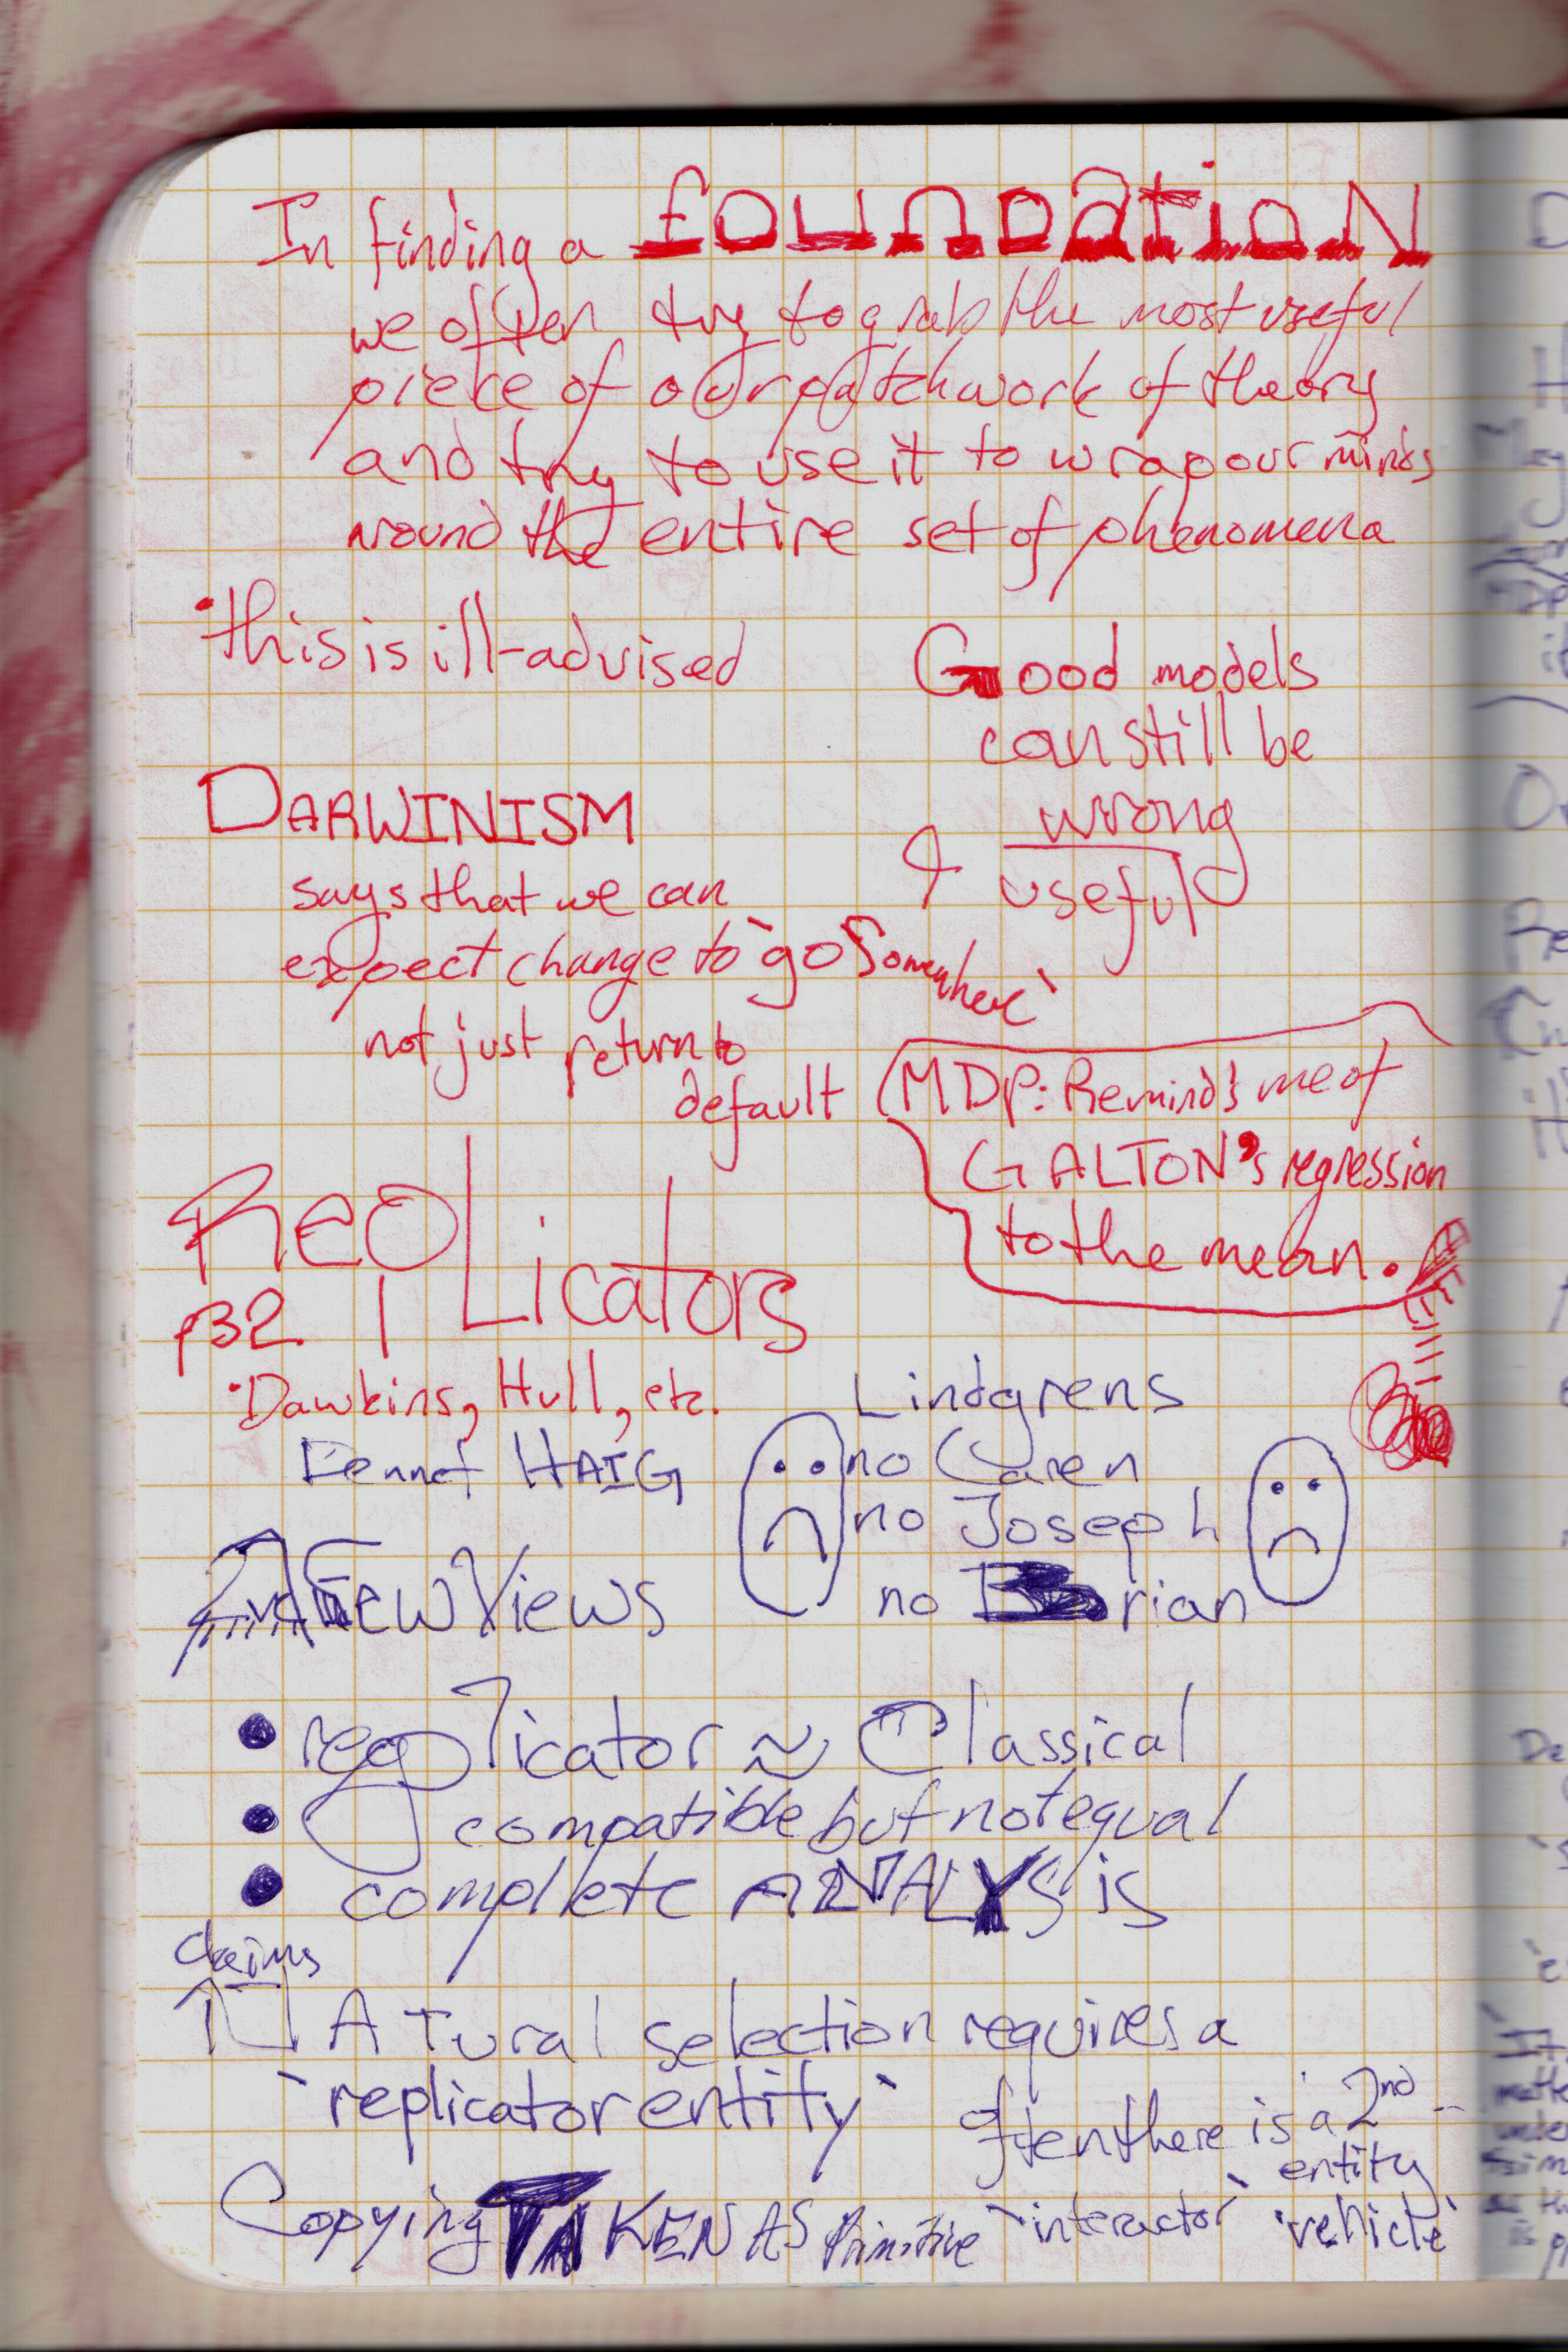 In finding a foundatioN
we often try to grab the most useful
piece of our patchwork of theory
and try to use it to wrap our minds
around the entire set of phenomena
• this is ill-advised
Good models
can still be
wrong
& useful
DARWINISM
says that we can
expect change to `go Somewhere`
not just return to
default
(MDP: Reminds me of
GALTON's regression
to the mean.
RepLicators
p32
• Dawkins, Hull, etc.
Dennet HAIG
Lindgrens
no Caren
no Joseph
no Brian
Few Views
• replicator ≈ Classical
• compatible but not equal
• complete ANALYSis
Claims
NATural selection requires a
`replicator entity`
Often there is a 2nd
entity
Copying TAKEN AS Primitive
`interactor` `vehicle`